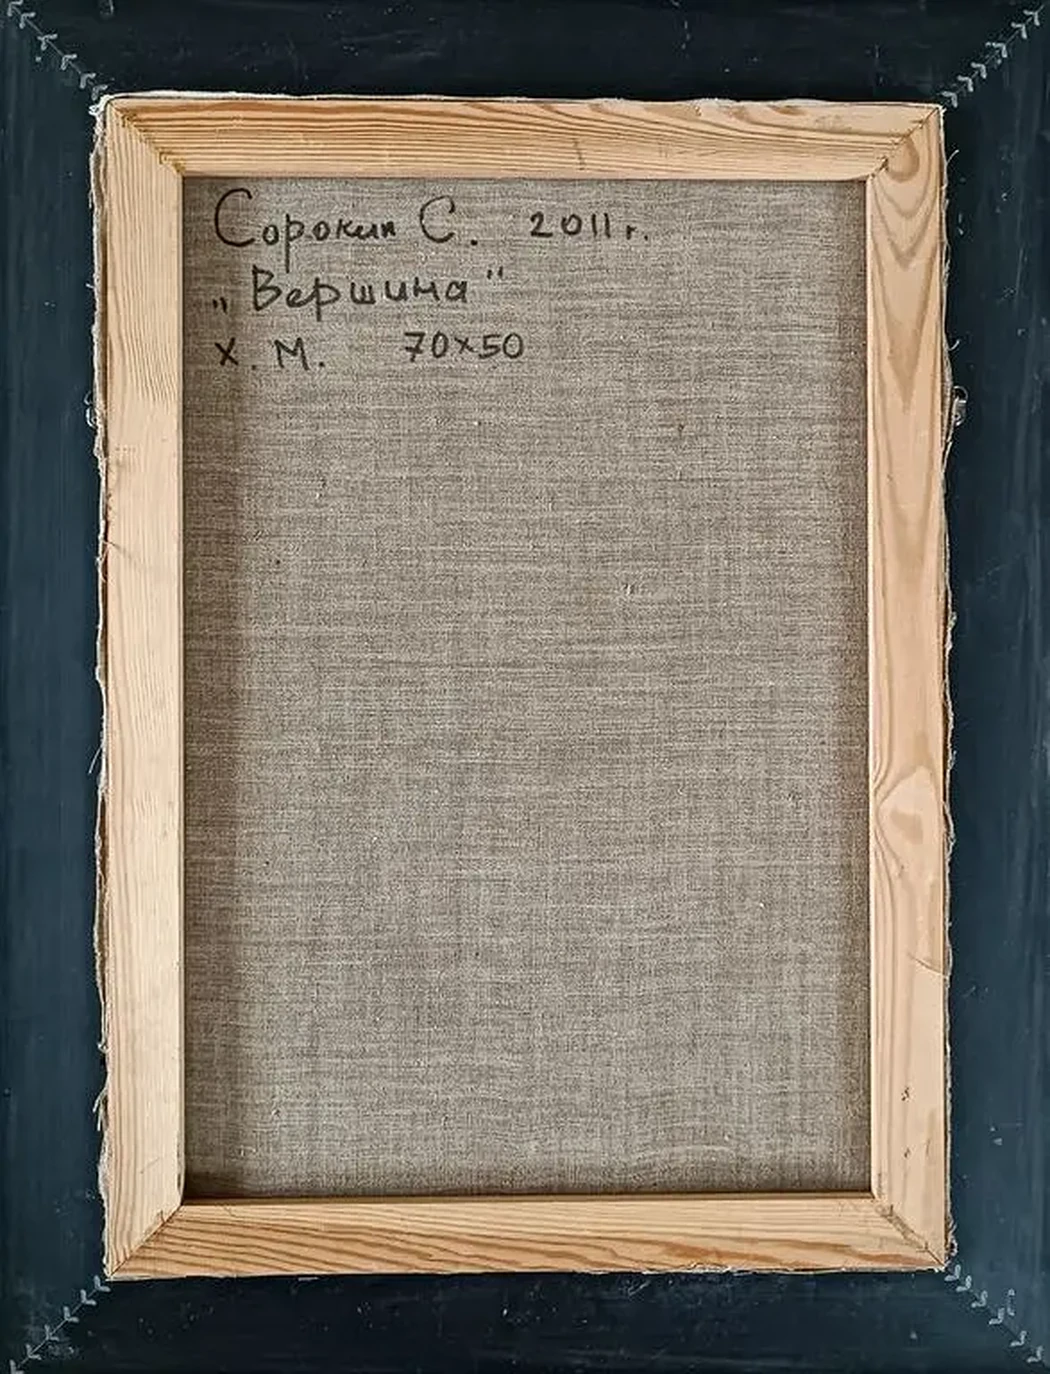 Сорокин С. 2011 г.
„Вершина"
Х. М. 70х50